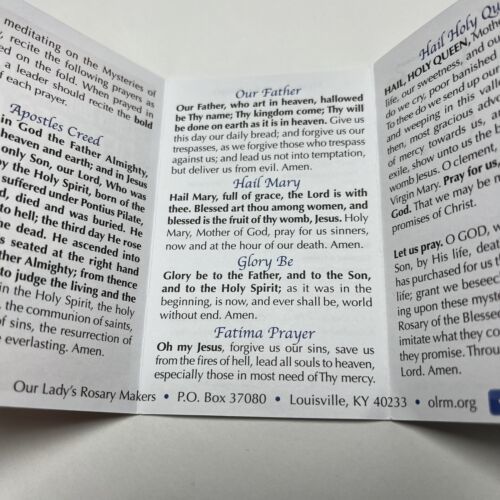 meditating on the Mysteries of
recite the following prayers as
on the fold. When prayed in
a leader should recite the bold
f each prayer.
Apostles Creed
in God the Father Almighty,
heaven and earth; and in Jesus
only Son, our Lord, Who was
by the Holy Spirit, born of the
suffered under Pontius Pilate,
died and was buried. He
to hell; the third day He rose
he dead. He ascended into
is seated at the right hand
ther Almighty; from thence
to judge the living and the
in the Holy Spirit, the holy
the communion of saints,
of sins, the resurrection of
everlasting. Amen.
Our Father
Our Father, who art in heaven, hallowed
be Thy name; Thy kingdom come; Thy will
be done on earth as it is in heaven. Give us
this day our daily bread; and forgive us our
trespasses, as we forgive those who trespass
against us; and lead us not into temptation,
but deliver us from evil. Amen.
Hail Mary
Hail Mary, full of grace, the Lord is with
thee. Blessed art thou among women, and
blessed is the fruit of thy womb, Jesus. Holy
Mary, Mother of God, pray for us sinners,
now and at the hour of our death. Amen.
Glory Be
Glory be to the Father, and to the Son,
and to the Holy Spirit; as it was in the
beginning, is now, and ever shall be, world
without end. Amen.
Fatima Prayer
Oh my Jesus, forgive us our sins, save us
from the fires of hell, lead all souls to heaven,
especially those in most need of Thy mercy.
Hail Holy Qu
HAIL, HOLY QUEEN, Mothe
life, our sweetness, and ou
do we cry, poor banished
To thee do we send up ou
and weeping in this valle
then, most gracious advo
of mercy towards us, a
exile, show unto us the
womb Jesus. O clement,
Virgin Mary. Pray for us
God. That we may be
promises of Christ.
Let us pray. O GOD, w
Son, by His life, deat
has purchased for us t
life; grant we beseec
ing upon these myst
Rosary of the Blesse
imitate what they co
they promise. Throu
Lord. Amen.
Our Lady's Rosary Makers • P.O. Box 37080 • Louisville, KY 40233 • olrm.org